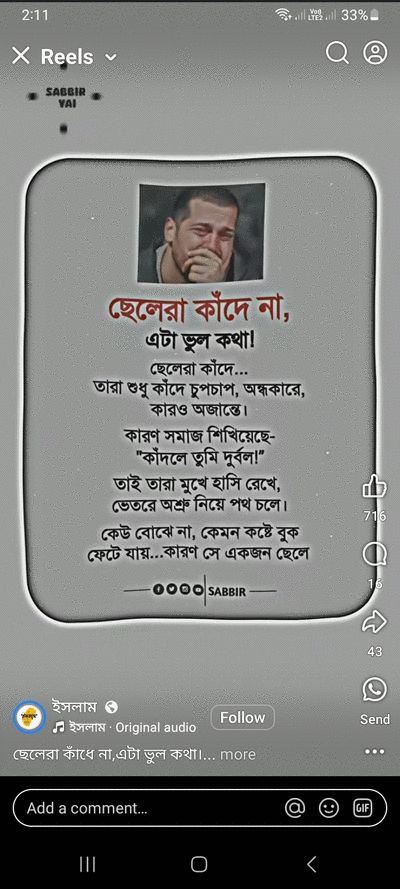 2:11
Vo))
LTE2
33%
Reels
SABBIR
YAI
ছেলেরা কাঁদে না,
এটা ভুল কথা!
ছেলেরা কাঁদে...
তারা শুধু কাঁদে চুপচাপ, অন্ধকারে,
কারও অজান্তে।
কারণ সমাজ শিখিয়েছে-
"কাঁদলে তুমি দুর্বল!"
তাই তারা মুখে হাসি রেখে,
ভেতরে অশ্রু নিয়ে পথ চলে।
কেউ বোঝে না, কেমন কষ্টে বুক
ফেটে যায়...কারণ সে একজন ছেলে
SABBIR
716
16
43
Send
ইসলাম
ইসলাম · Original audio
Follow
ছেলেরা কাঁধে না,এটা ভুল কথা।... more
Add a comment...
GIF